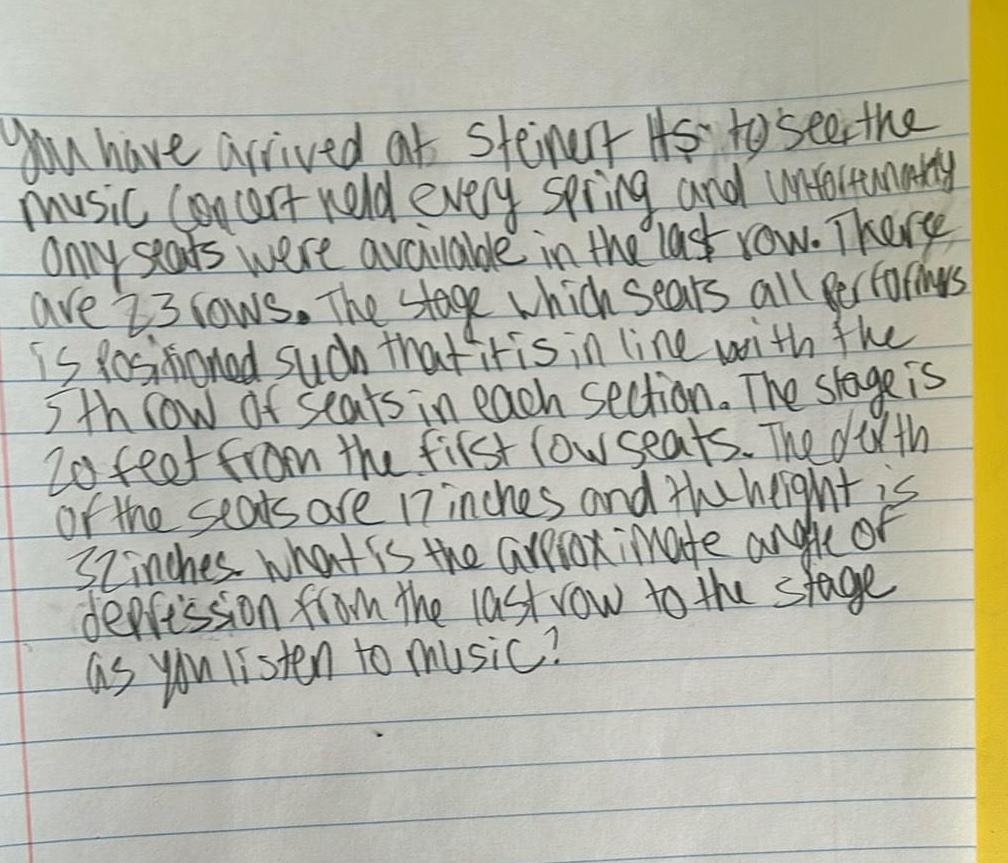 You have arrived at Steinert HS to see the
music concert held every spring and unfortunatly
only seats were available in the last row. There
are 23 rows. The stage which seats all performers
is positioned such that it is in line with the
5th row of seats in each section. The stage is
20 feet from the first row seats. The depth
of the seats are 17 inches and the height is
32 inches. What is the approximate angle of
depression from the last row to the stage
as you listen to music?